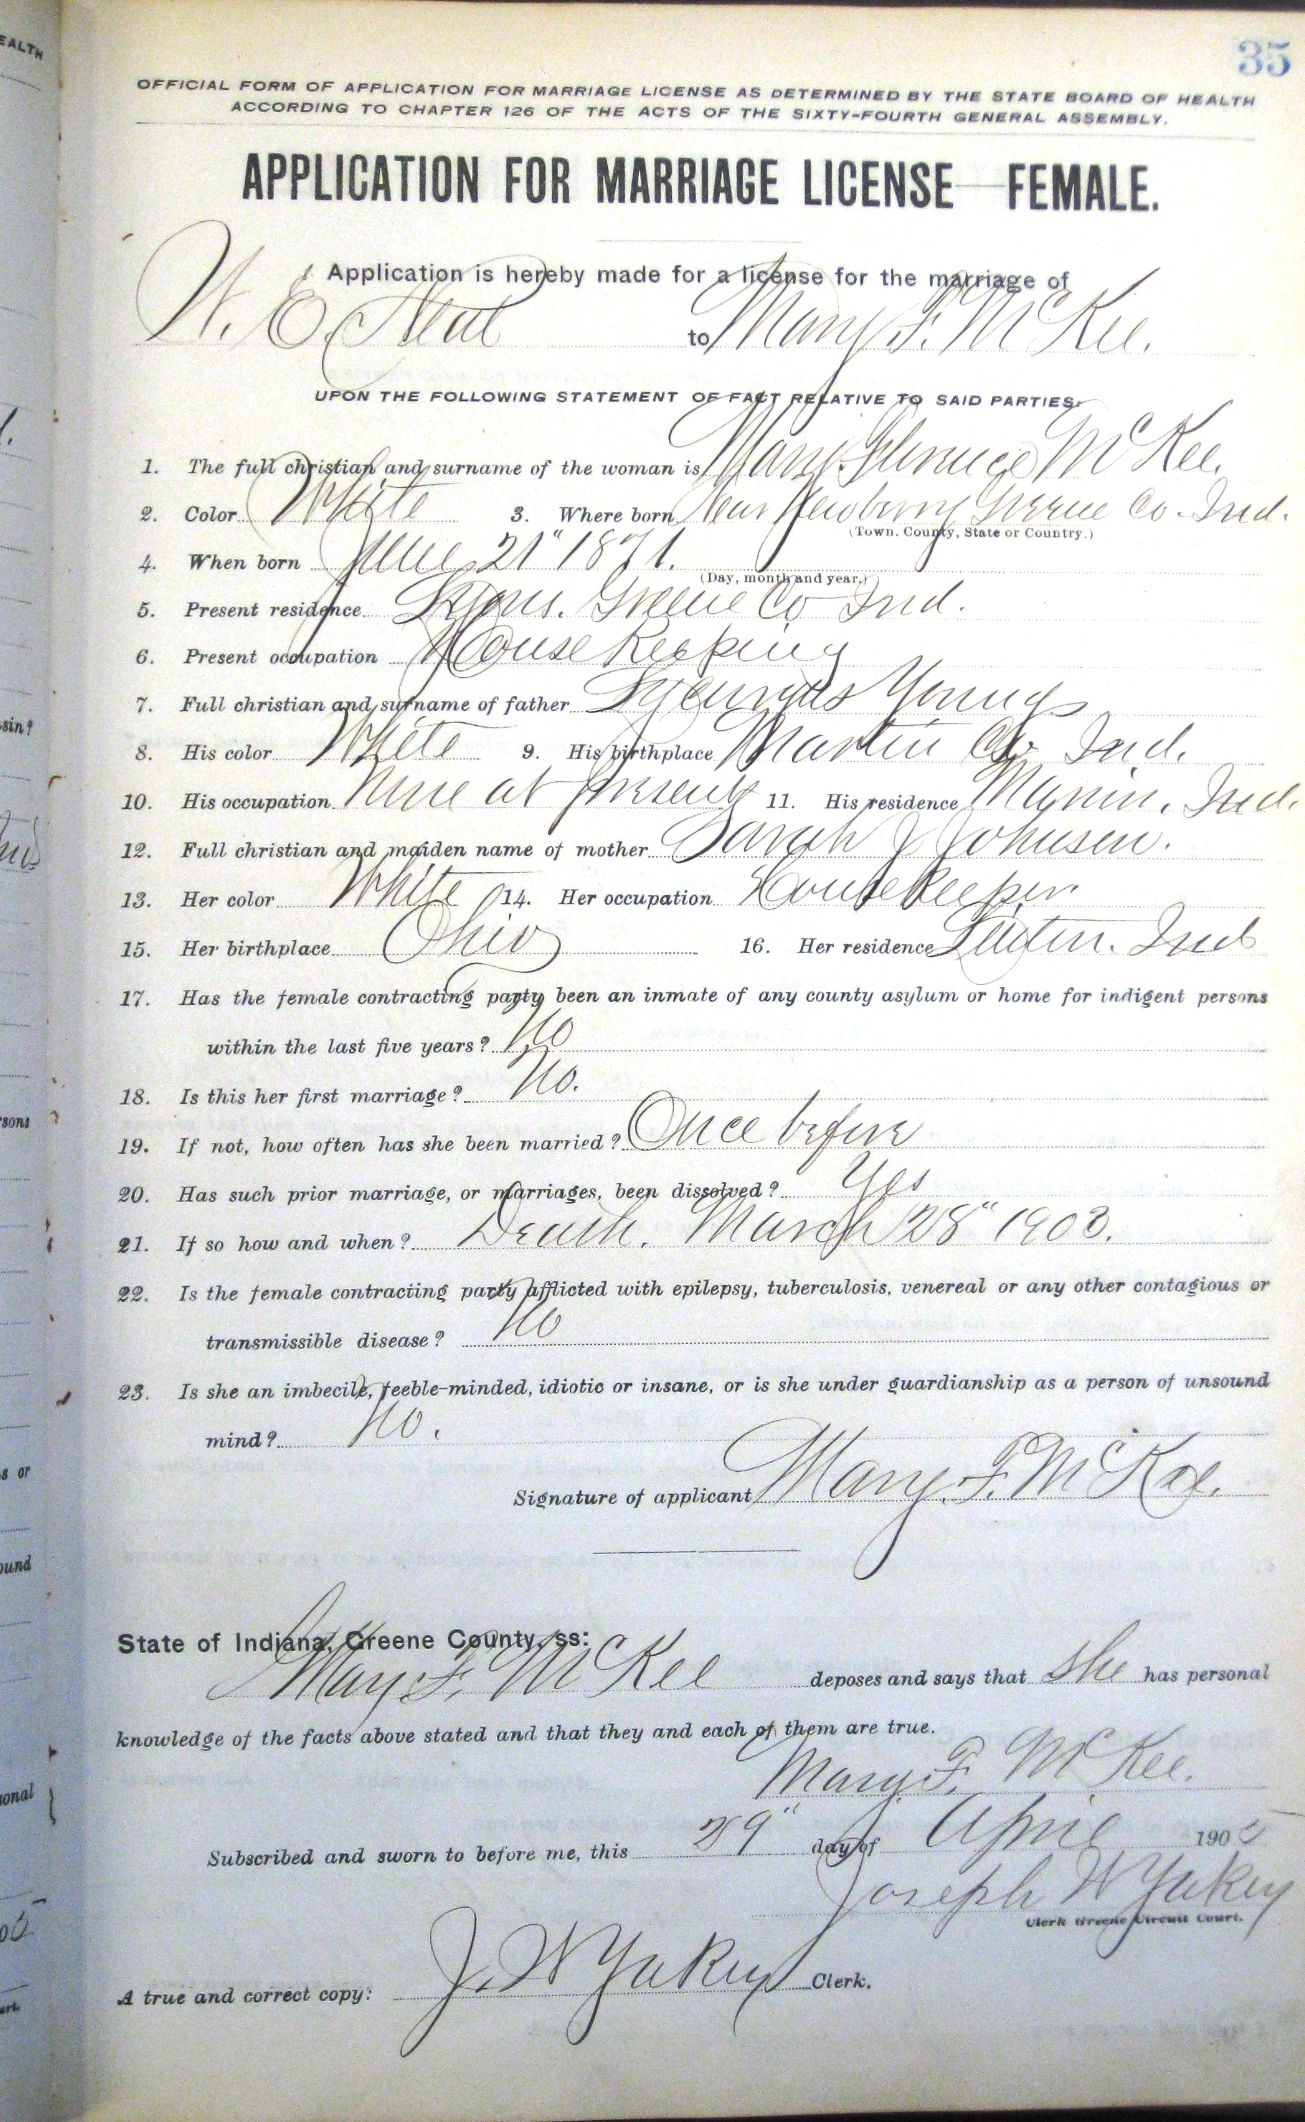 35
OFFICIAL FORM OF APPLICATION FOR MARRIAGE LICENSE AS DETERMINED BY THE STATE BOARD OF HEALTH
ACCORDING TO CHAPTER 126 OF THE ACTS OF THE SIXTY-FOURTH GENERAL ASSEMBLY.
APPLICATION FOR MARRIAGE LICENSE FEMALE.
Application is hereby made for a license for the marriage of
W. E. Neal to Mary F. McKee.
UPON THE FOLLOWING STATEMENT OF FACT RELATIVE TO SAID PARTIES:
1. The full christian and surname of the woman is Mary McKee.
2. Color White 3. Where born Near Newberry Greene Co. Ind.
(Town. County, State or Country.)
4. When born June 21" 1871.
(Day, month and year.)
5. Present residence Lyons. Greene Co Ind.
6. Present occupation House Keeping
7. Full christian and surname of father
8. His color White 9. His birthplace Martin Co. Ind.
10. His occupation None at present 11. His residence Ind.
12. Full christian and maiden name of mother Sarah J Johnson.
13. Her color White 14. Her occupation House Keeper
15. Her birthplace Ohio 16. Her residence Linton. Ind
17. Has the female contracting party been an inmate of any county asylum or home for indigent persons
within the last five years? No
18. Is this her first marriage? No.
19. If not, how often has she been married? Once before
20. Has such prior marriage, or marriages, been dissolved? Yes
21. If so how and when? Death. March 28" 1903.
22. Is the female contracting party afflicted with epilepsy, tuberculosis, venereal or any other contagious or
transmissible disease? No
23. Is she an imbecile, feeble-minded, idiotic or insane, or is she under guardianship as a person of unsound
mind? No.
Signature of applicant Mary. F. McKee.
State of Indiana, Greene County, ss:
Mary F. McKee deposes and says that she has personal
knowledge of the facts above stated and that they and each of them are true.
Mary. F. McKee.
Subscribed and sworn to before me, this 29" day of April 1905
Joseph W Yakey
Clerk Greene Circuit Court.
A true and correct copy: J. W Yakey Clerk.